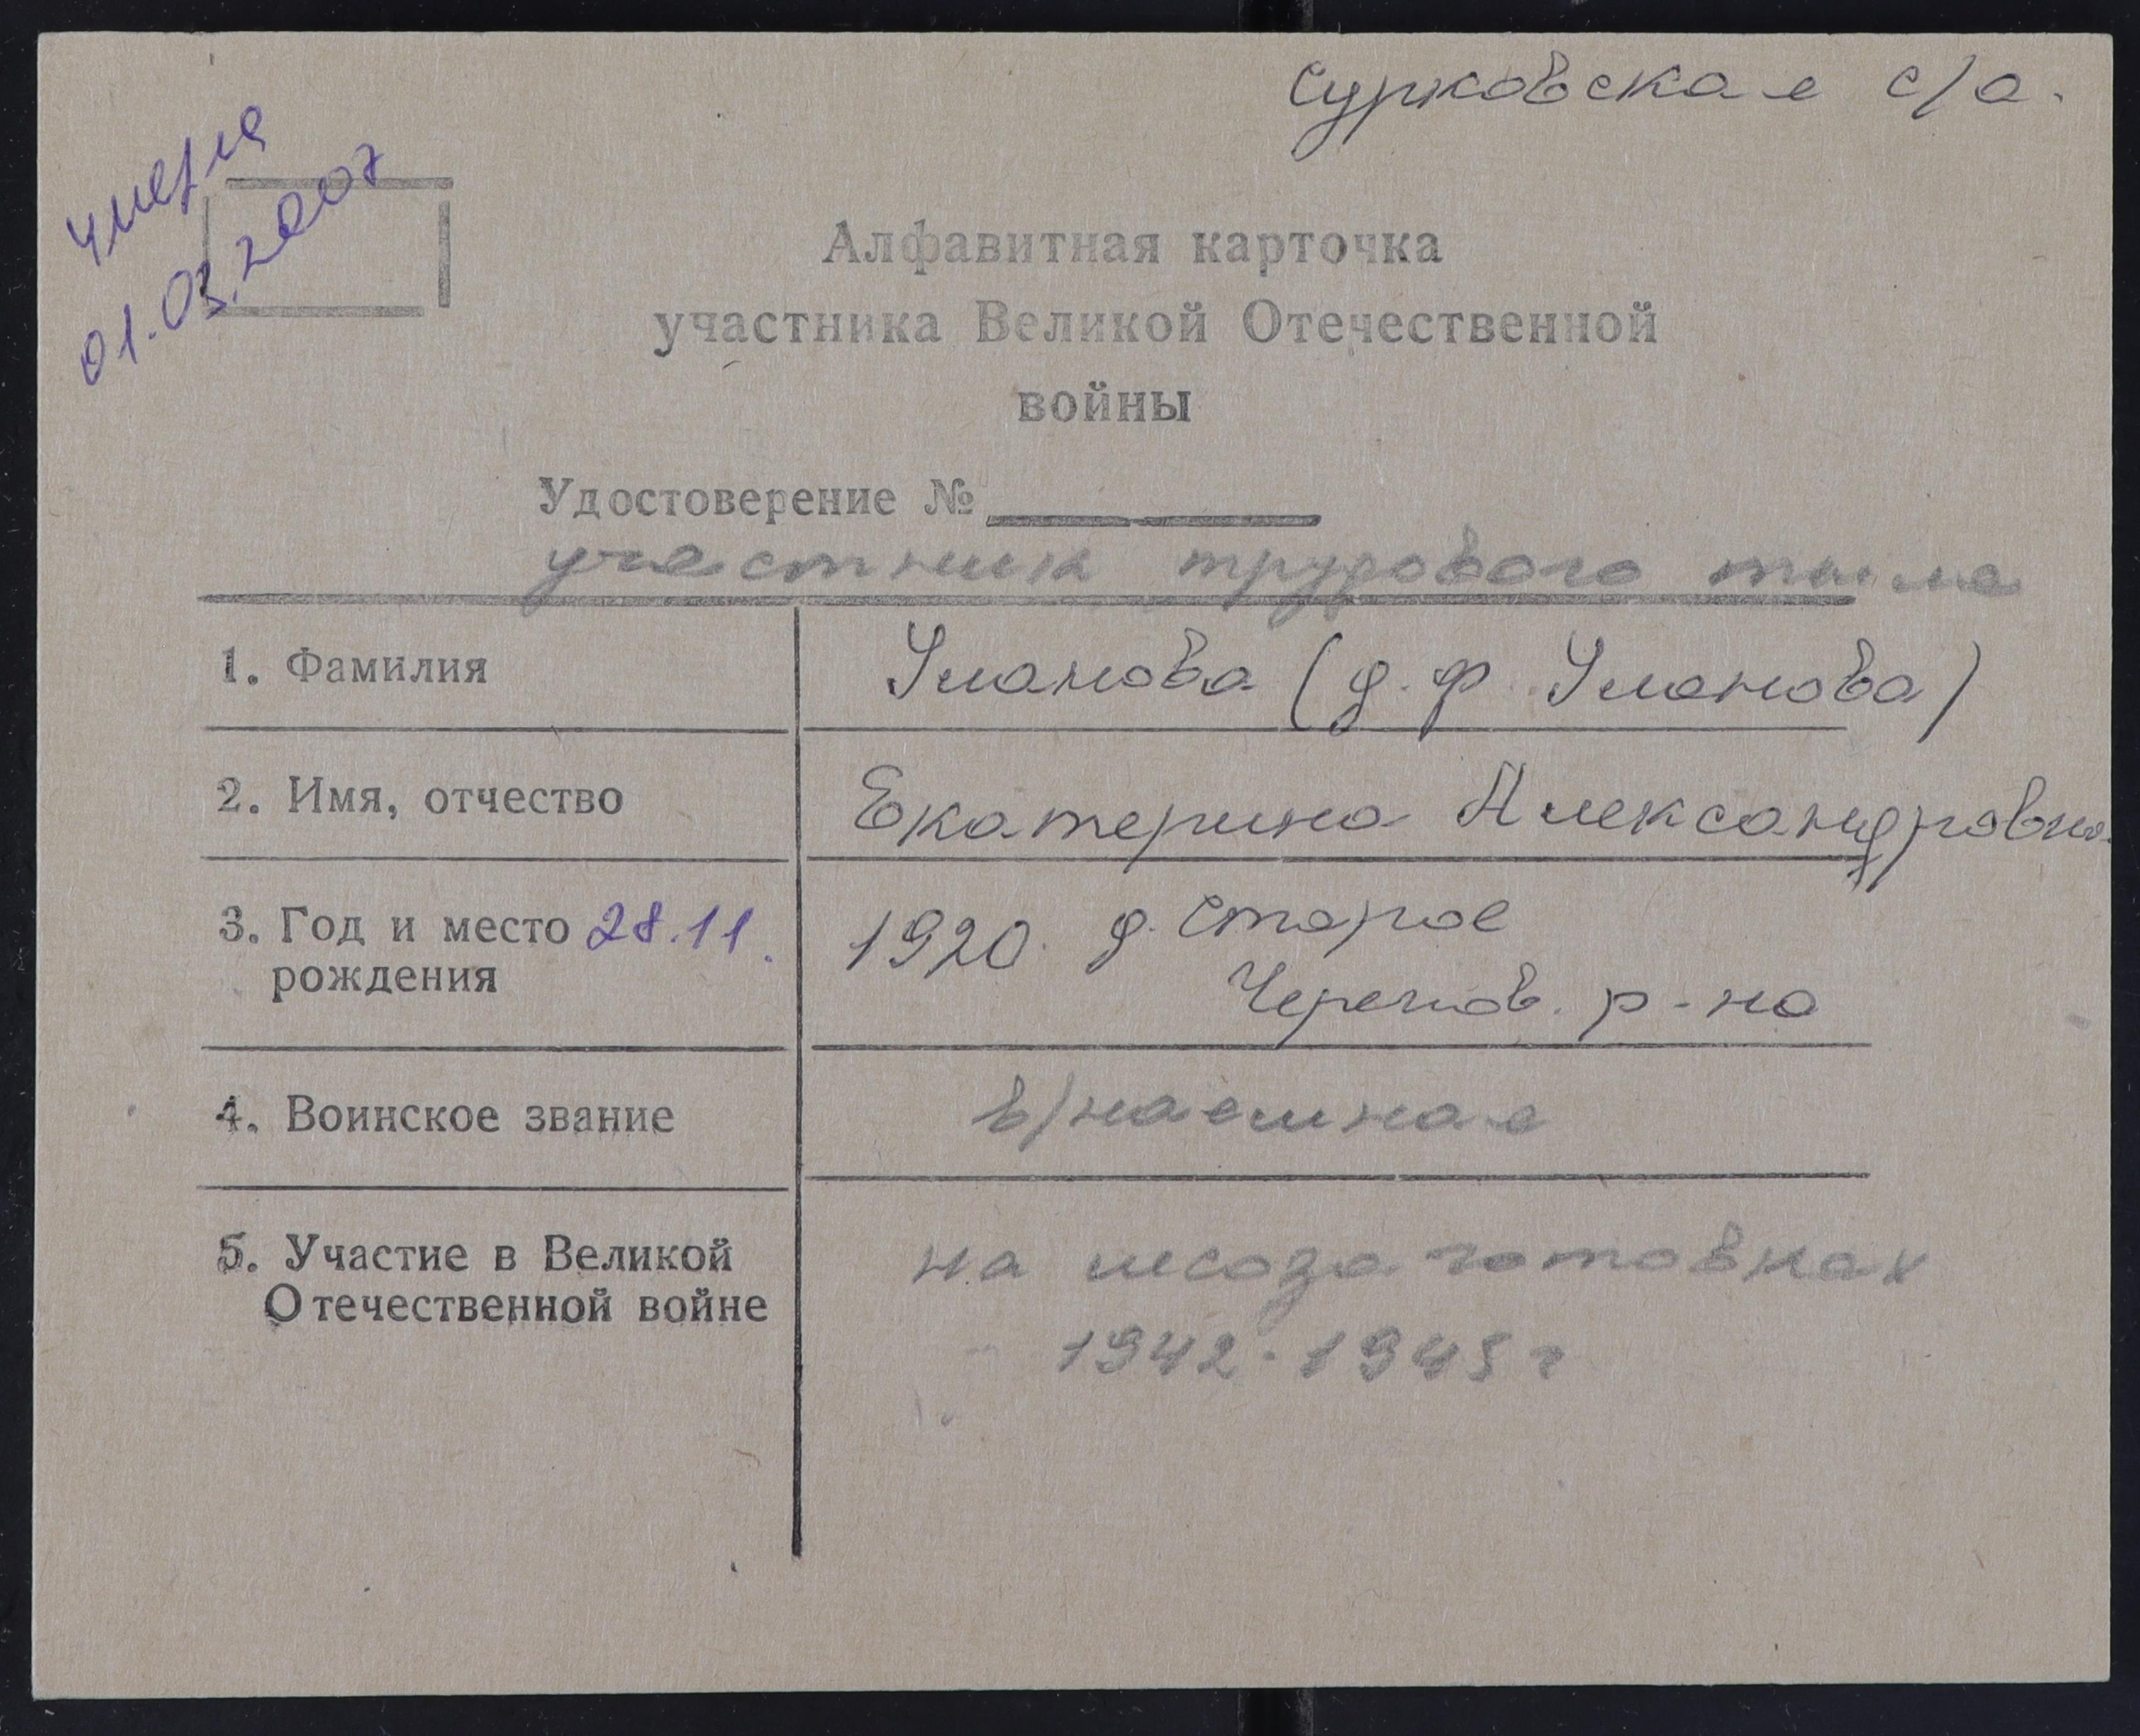 Сурковская с/а.
умерла
01.03.2007
Алфавитная карточка
участника Великой Отечественной
войны
Удостоверение №
участник трудового тыла
1. Фамилия Уланова (д. ф. Уланова)
2. Имя, отчество Екатерина Александровна
3. Год и место 28.11. 1920. д. Старое
рождения Черепов. р-на
4. Воинское звание в/наемная
5. Участие в Великой на лесозаготовках
Отечественной войне 1942-1945 г